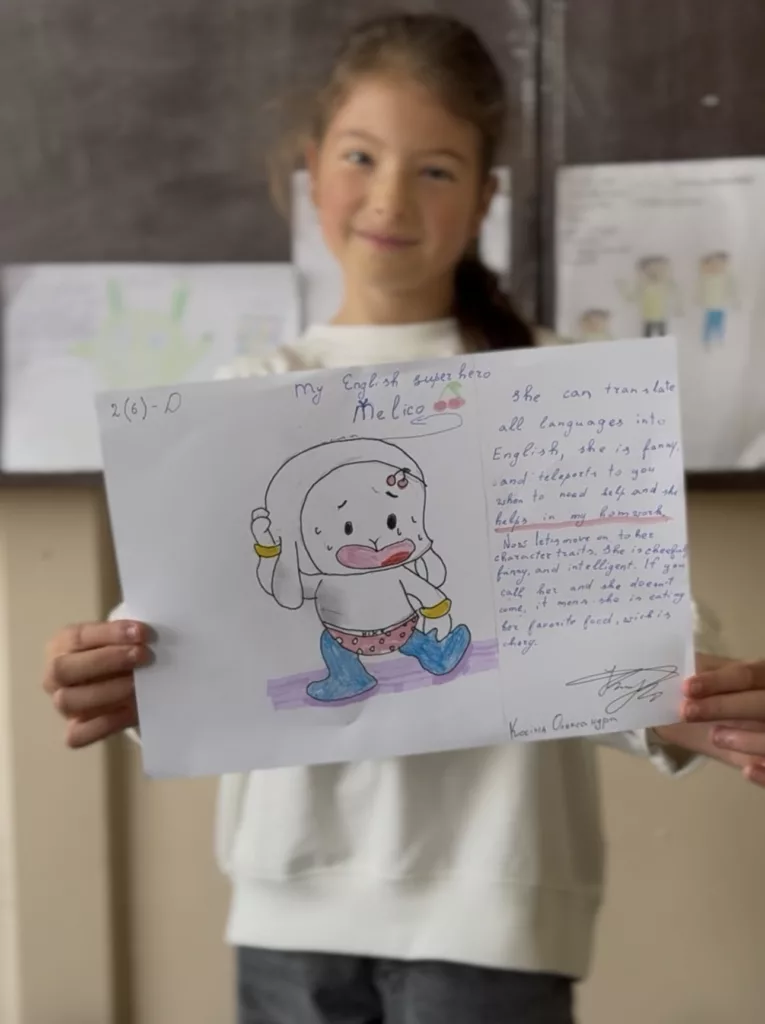 2(6)-D
My English super hero
Melico
She can translate
all languages into
English, she is funny,
and teleports to you
when to need help and she
helps in my homework
Now let's move on to her
character traits. She is cheerful
funny, and intelligent. If you
call her and she doesn't
come, it mens she is eating
her favorite food, wich is
chery.
Олександра